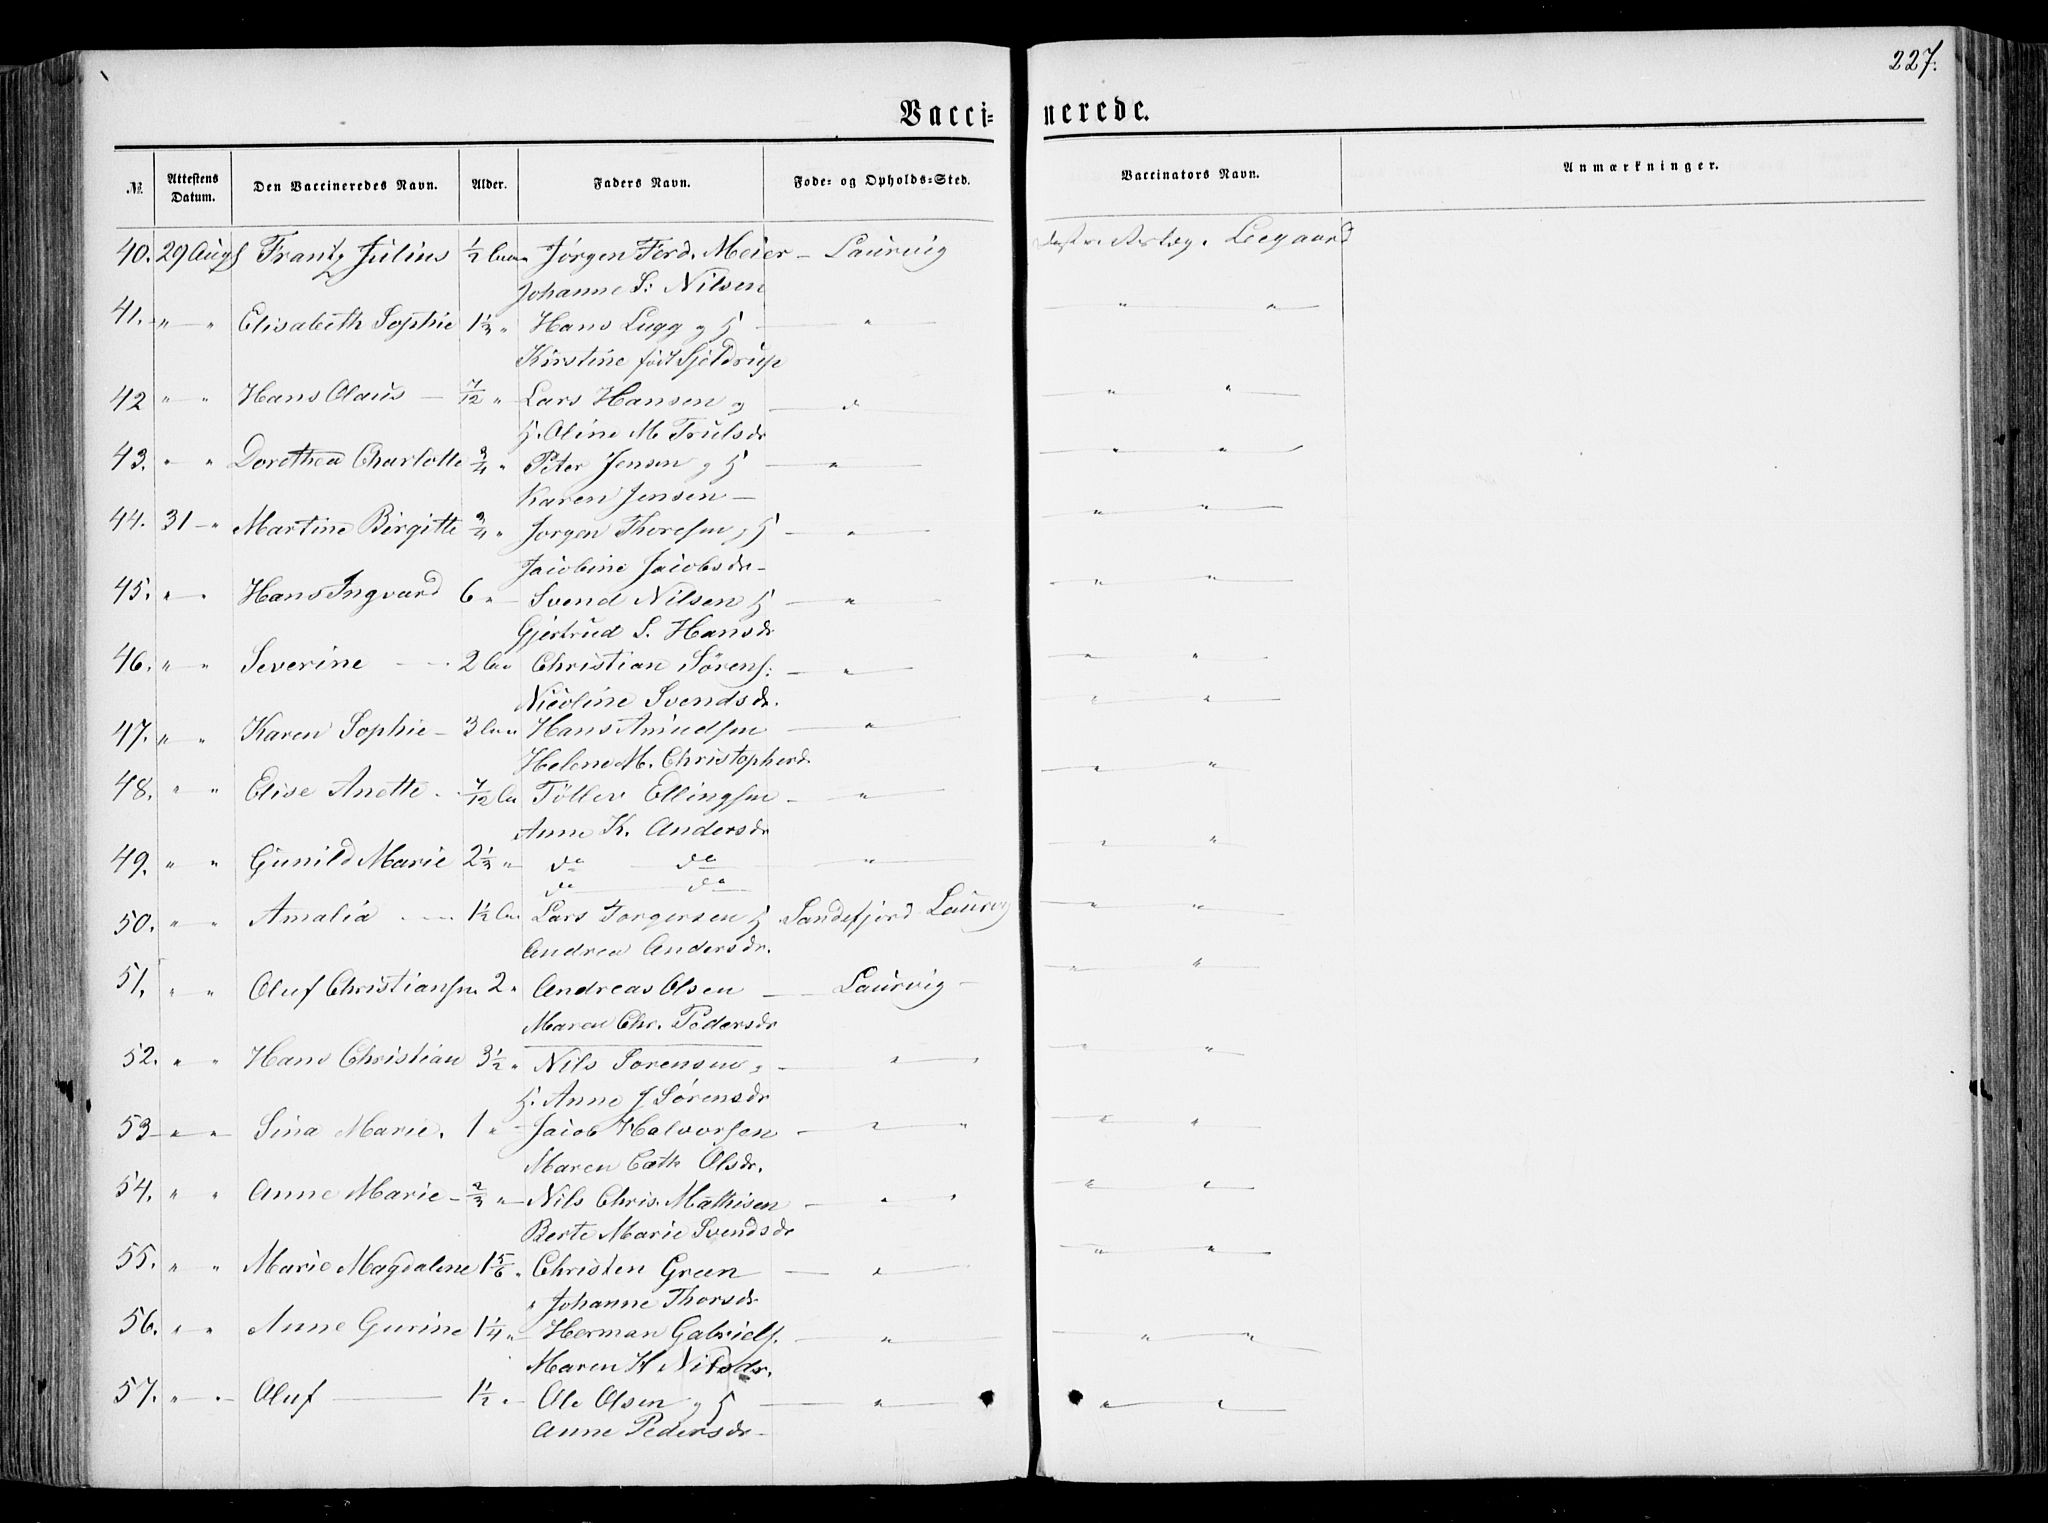 227.
Vacci=nerede.
No. Attestens Datum. Den Vaccineredes Navn. Alder. Faders Navn. Føde= og Opholds=Sted. Vaccinators Navn. Anmærkninger.
40. 29 Augs Frantz Julius ½ Jørgen Ferd. Meier - Laurvig Leegaard
Johanne S. Nilsen
41. " " Elisabeth Sophie 1⅓ " Hans Lugg og H " " "
Kirstine født
42 " " Hans Olaus - 7/12 " Lars Hansen og " "
H. Oline M. Trulsdr
43. " " Dorothea Charlotte 3/4 " Peter Jensen og H " " "
Karen Jensen -
44. 31 - " Martine Birgitte 3/4 " Jørgen Thoresen og H " " "
Jacobine Jacobsdr -
45. " " Hans Ingvard 6 " Svend Nilsen H " " "
Gjertrud S. Hansdr
46. " " Severine - 2 Christian Sørens: " " "
Nicoline Svendsdr.
47. " " Karen Sophie - 3 Hans Amudsen " " "
Helene M. Christophersd.
48. " " Elise Anette - 7/12 Töllev Ellingsen - " " "
Anne K. Andersdr
49. " " Gunild Marie 2⅓ " do do " " "
do do
50. " " Amalia - 1½ Lars Torgersen H Sandefjord Laurvig " "
Andrea Andersdr.
51. " " Oluf Christiansen 2 " Andreas Olsen - Laurvig - " "
Maren Chr. Pedersdr
52. " " Hans Christian 3½ " Nils Sorensen " - " " " "
H. Anne J Sørensdr
53 " " Sina Marie. 1 " Jacob Halvorsen - " " " "
Maren Cath Olsdr.
54. " " Anne Marie - 2/3 " Nils Chris. Mathisen - " " " "
Berte Marie Svendsdr
55. " " Marie Magdalene 1 5/6 " Christen Green - " " "
" Johanne Thorsdr
56. " " Anne Gurine 1¼ " Herman Gabriels. - " " "
Maren H Nilsdr.
57. " " Oluf - 1½ " Ole Olsen og H - " " "
Anne Pedersdr -